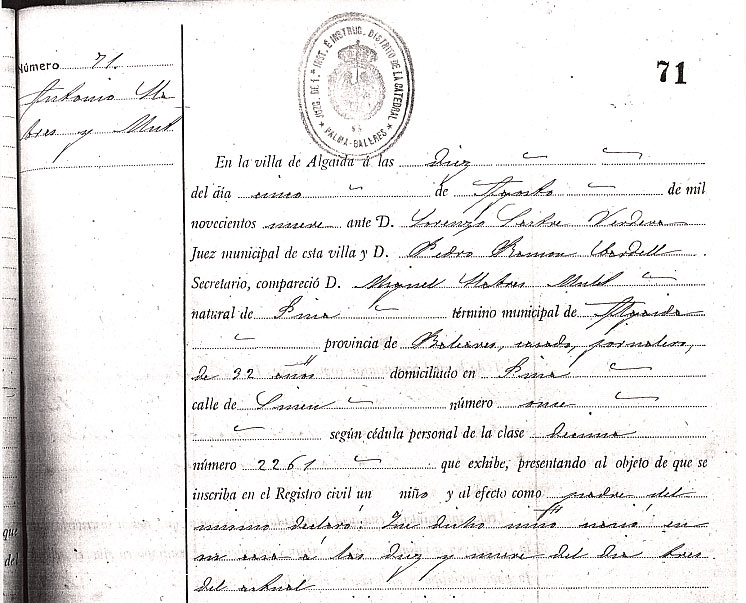 Número 71.
Antonio
y Mut
JUZG. DE 1.ª INST. É INSTRUC. DISTRITO DE LA CATEDRAL
PALMA-BALERES
71
En la villa de Algaida á las diez
del día cinco de Agosto de mil
novecientos nueve ante D. Lorenzo Sastre Verdera
Juez municipal de esta villa y D. Pedro Ramon
Secretario, compareció D. Miguel Mut
natural de Pina término municipal de Algaida
provincia de Baleares, casado, jornalero,
de 32 años domiciliado en Pina
calle de número once
según cédula personal de la clase decima
número 2261 que exhibe, presentando al objeto de que se
inscriba en el Registro civil un niño y al efecto como padre del
mismo declaró: Que dicho niño nació en
su casa á las diez y nueve del dia tres
del actual
que
del